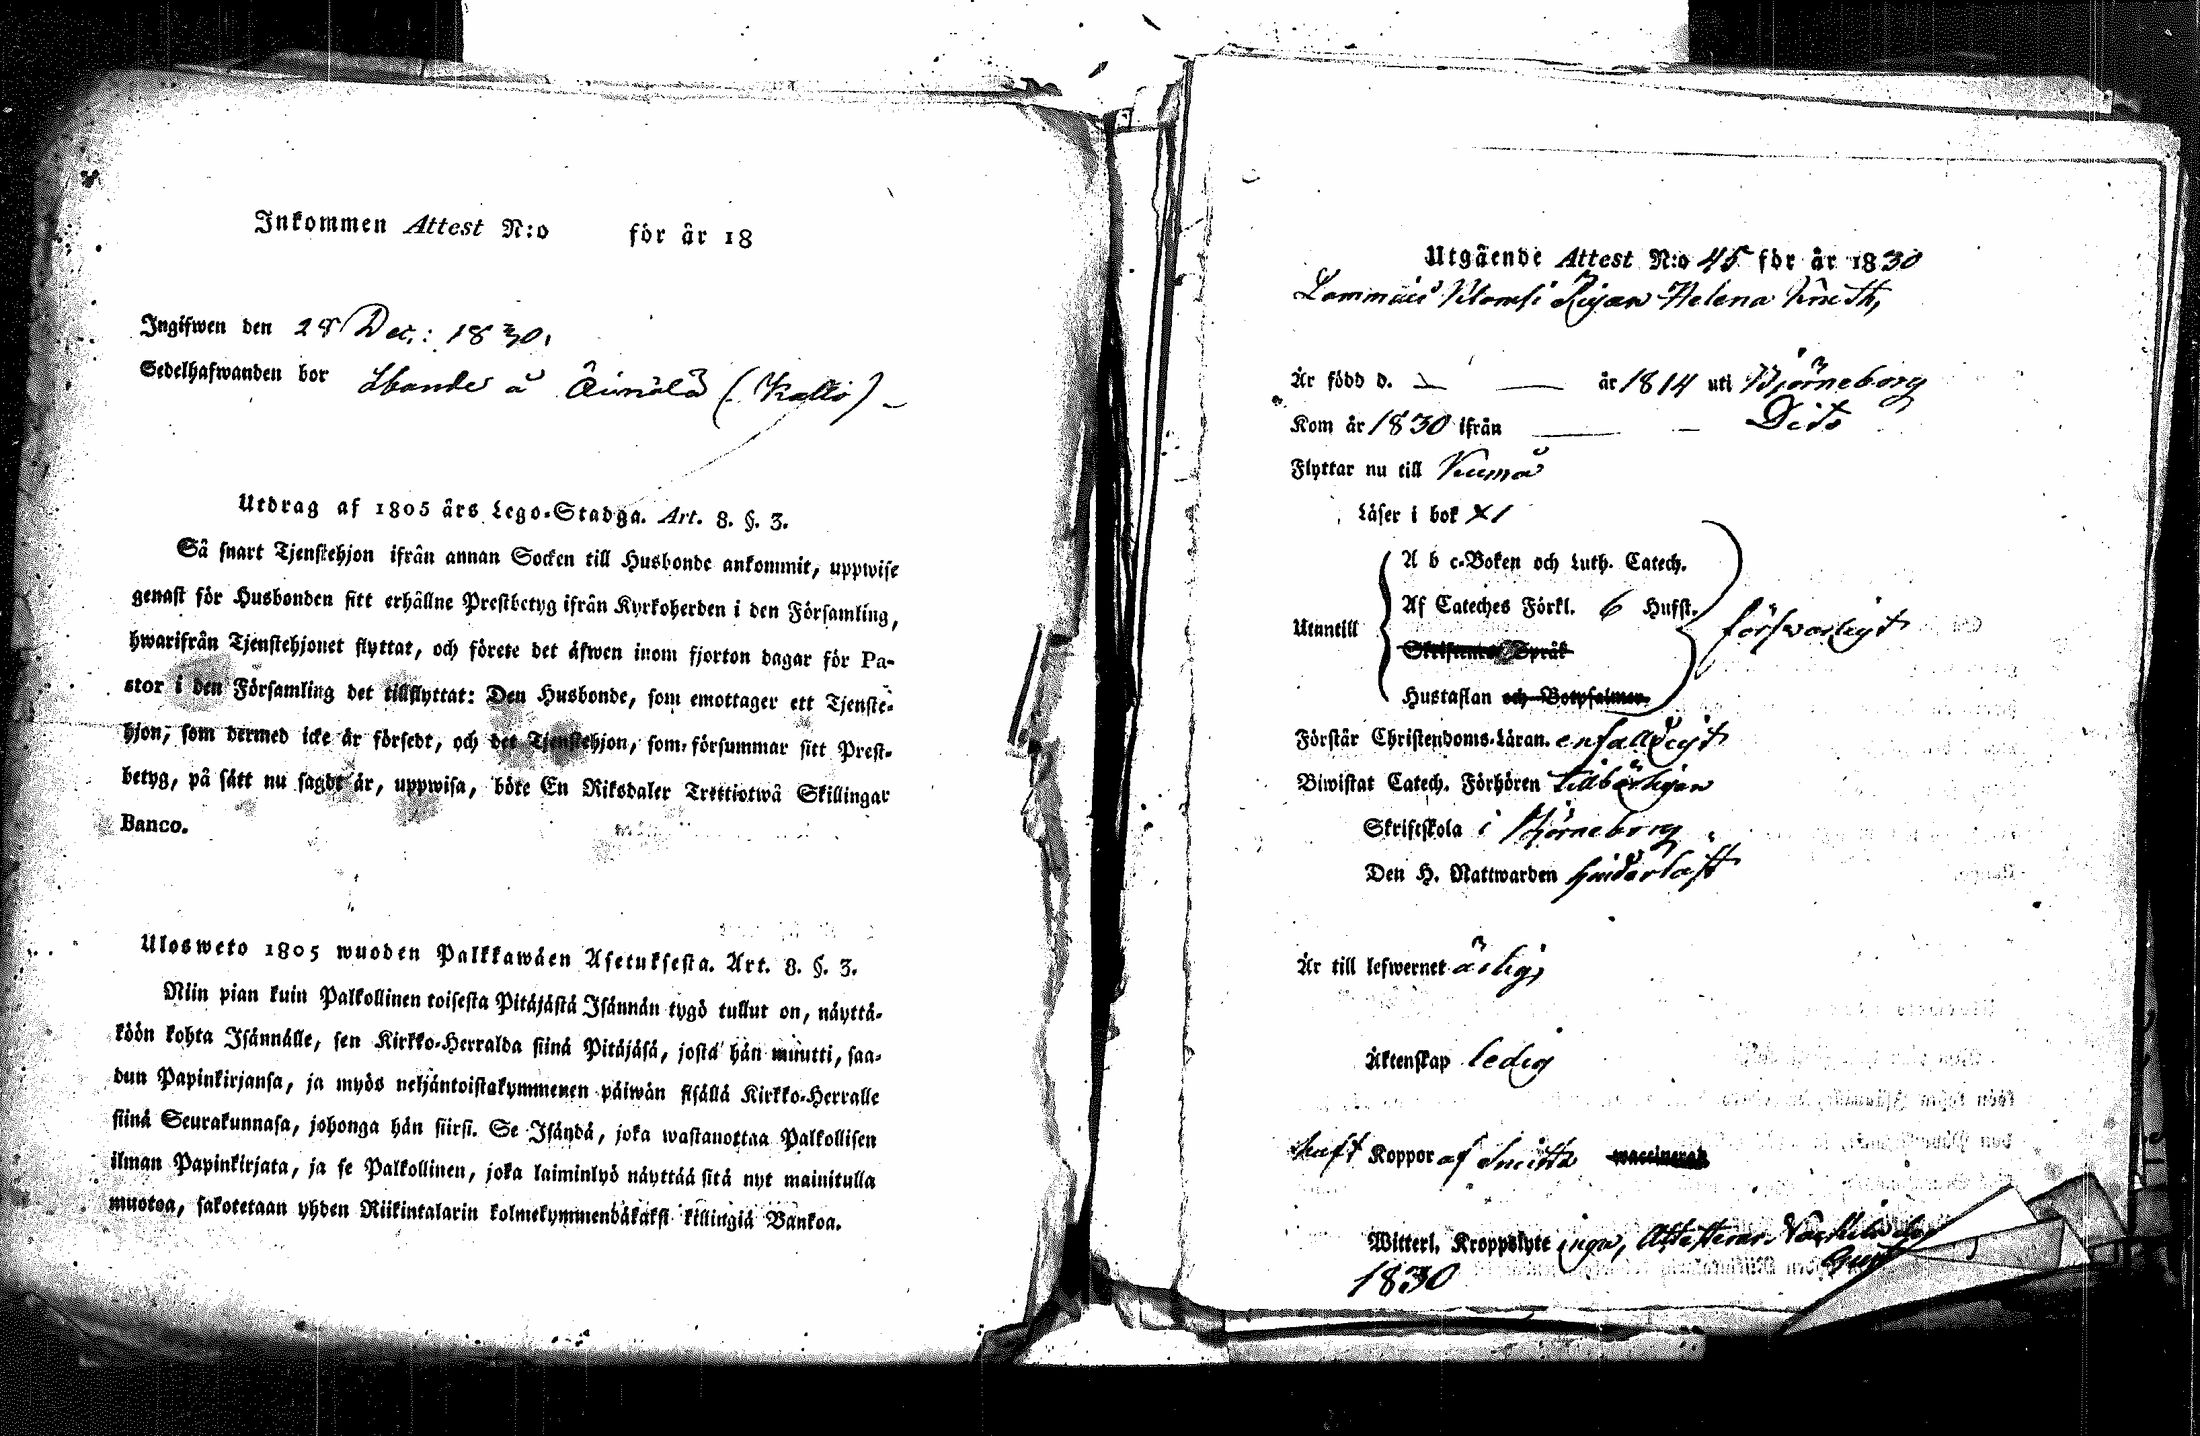 Inkommen Attest N:o för år 18
Ingifwen den 28 Dec.: 1830.
Sedelhafwanden bor å (Kallo)
Utdrag af 1805 års Lego-Stadga. Art. 8. §. 3.
Så snart Tjenstehjon ifrån annan Socken till Husbonde ankommit, uppwise
genast för Husbonden sitt erhållne Prestbetyg ifrån Kyrkoherden i den Församling,
hwarifrån Tjenstehjonet flyttat, och förete det äfwen inom fjorton dagar för Pa-
stor i den Församling det tillflyttat: Den Husbonde, som emottager ett Tjenste-
hjon, som dermed icke är försedt, och det Tjenstehjon, som försummar sitt Prest-
betyg, på sätt nu sagdt är, uppwisa, böte En Riksdaler Trettiotwå Skillingar
Banco.
Ulosweto 1805 wuoden Palkkawäen Asetuksesta. Art. 8. §. 3.
Niin pian kuin Palkollinen toisesta Pitäjästä Isännän tygö tullut on, näyttä-
köön kohta Isännälle, sen Kirkko-Herralda siinä Pitäjäsä, josta hän muutti, saa-
dun Papinkirjansa, ja myös neljäntoistakymmenen päiwän sisällä Kirkko-Herralle
siinä Seurakunnasa, johonga hän siirsi. Se Isändä, joka wastanottaa Palkollisen
ilman Papinkirjata, ja se Palkollinen, joka laiminlyö näyttää sitä nyt mainitulla
muotoa, sakotetaan yhden Riikintalarin kolmekymmendäkaksi killingiä Bankoa.
Utgående Attest N:o 45 för år 1830
Pigan Helena
Är född d. år 1814 uti Björneborg
Kom år 1830 ifrån Dito
Flyttar nu till Kumå
Läser i bok X1
A b c-Boken och Luth. Catech.
Af Cateches Förkl. 6 Hufst.
Utantill försvarligit
Skriftenes Språk
Hustaflan och Botpsalmer.
Förstår Christendoms-Läran. enfalldigt
Biwistat Catech. Förhören tillbörligen
Skriftskola i Björneborg
Den H. Nattwarden hinderlöst
Är till lefwernet ärlig,
Äktenskap ledig
haft Koppor af Smitta waccinerat
Witterl. Kroppslyte inga, Attesterar
1830